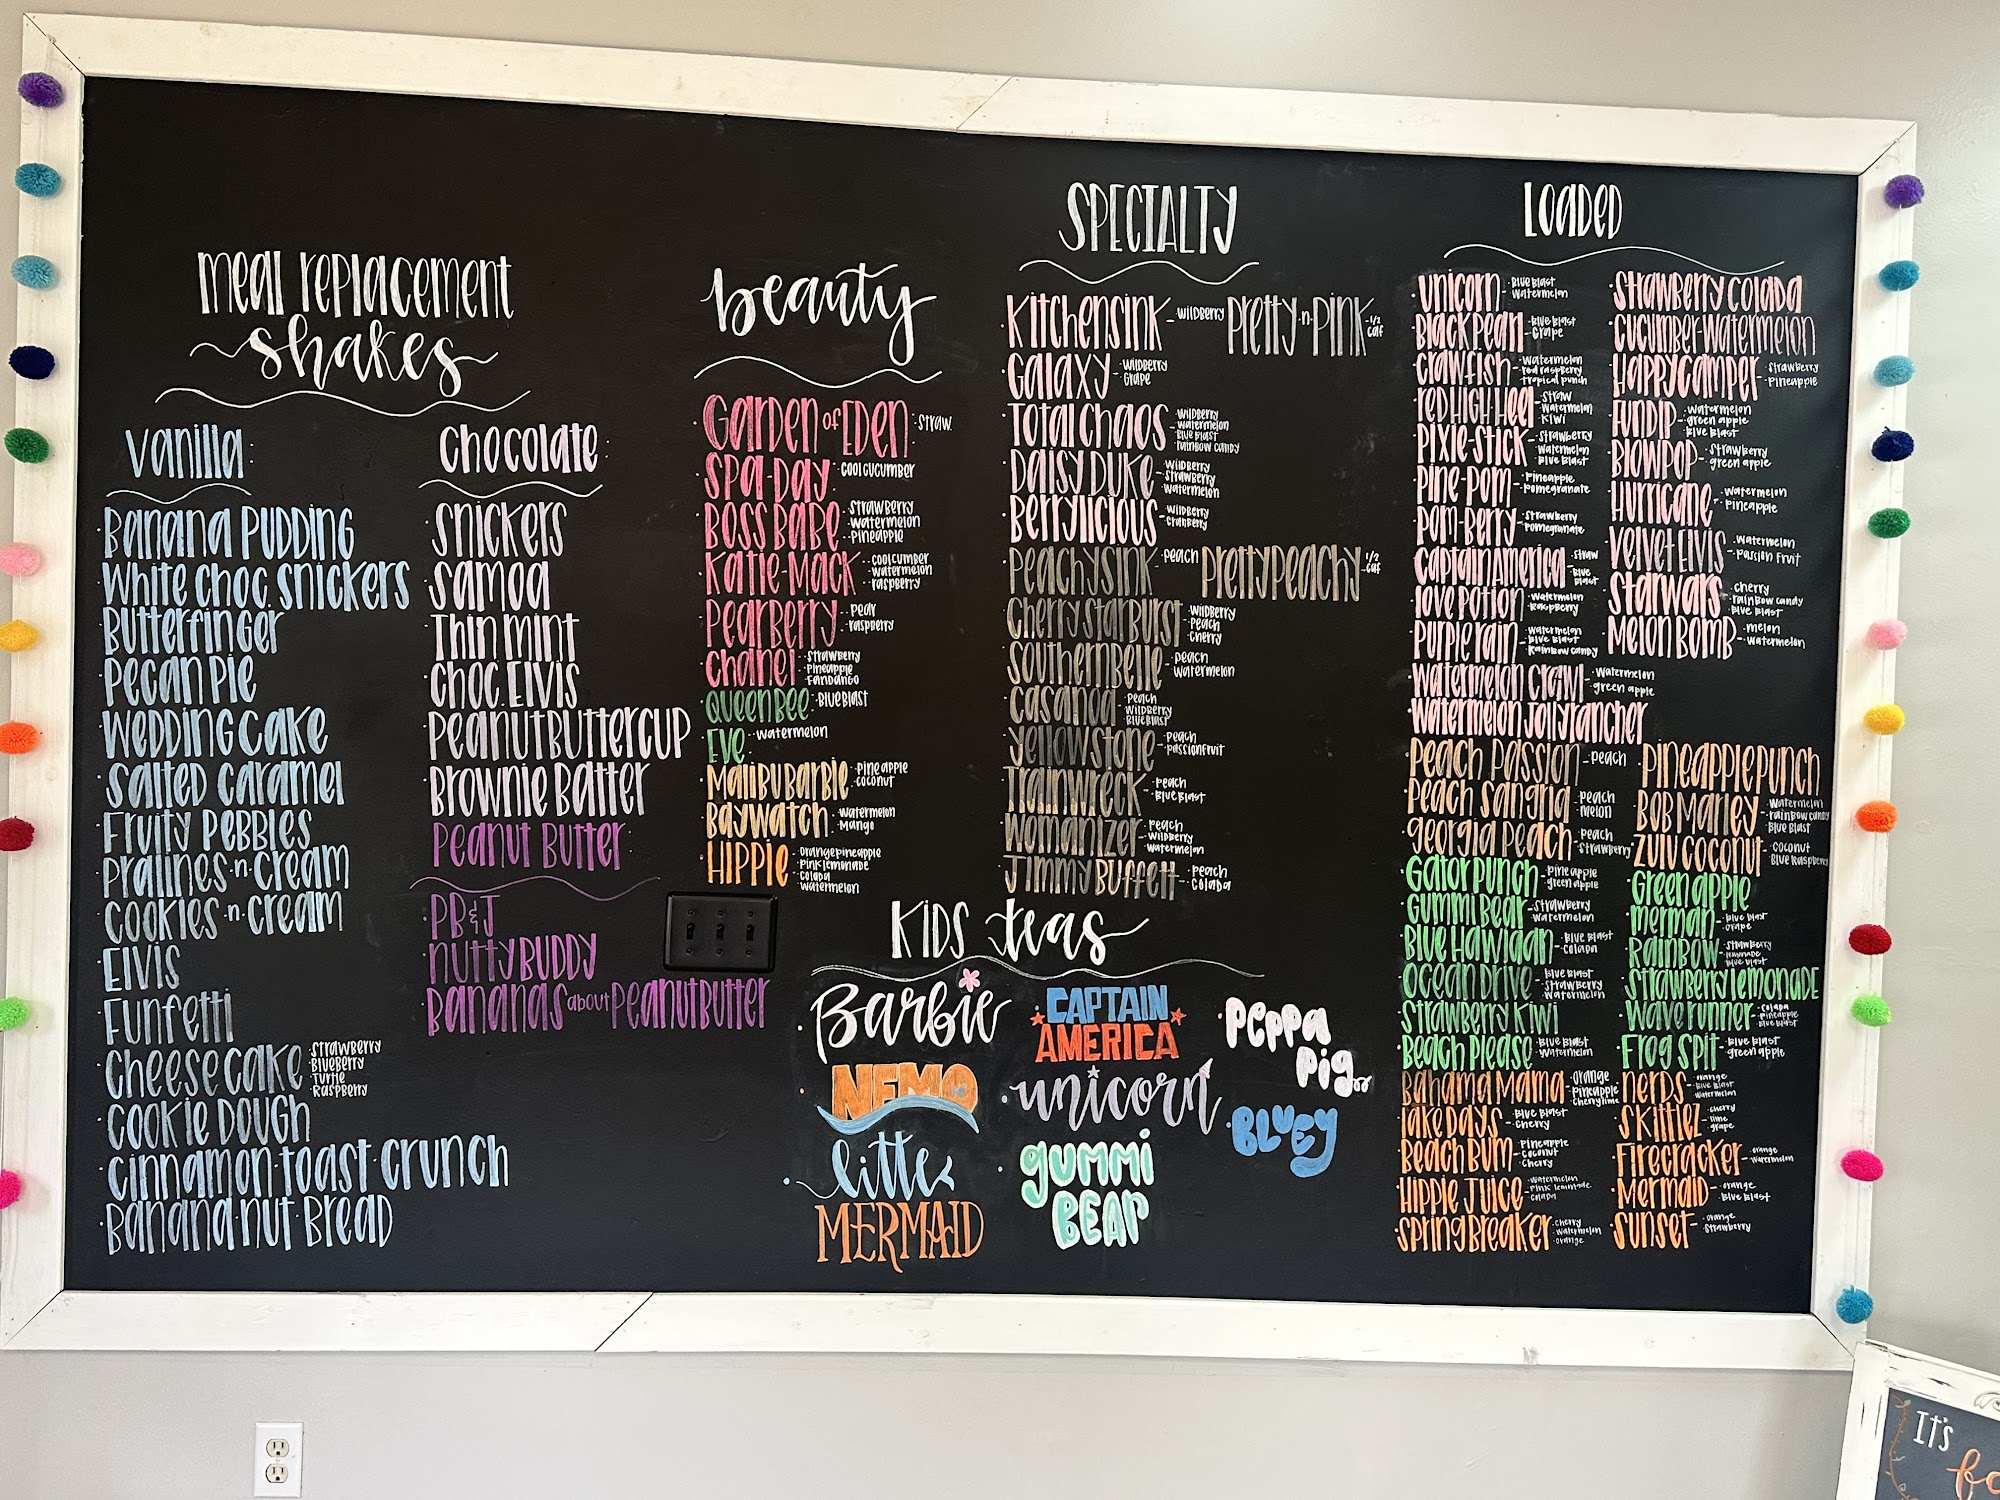 meal replacement
shakes
vanilla
Banana Pudding
White Choc. Snickers
Butterfinger
Pecan Pie
Wedding Cake
Salted Caramel
Fruity Pebbles
Pralines-n-Cream
Cookies-n-Cream
Elvis
Funfetti
Cheesecake
Strawberry
Blueberry
Turtle
Raspberry
Cookie Dough
Cinnamon Toast Crunch
Banana Nut Bread
Chocolate
Snickers
Samoa
Thin Mint
Choc. Elvis
Peanut Butter Cup
Brownie Batter
Peanut Butter
PB&J
Nutty Buddy
Bananas about Peanut Butter
beauty
Garden of Eden - Straw.
Spa-Day - Cool Cucumber
Boss Babe - Strawberry
- Watermelon
- Pineapple
Katie-Mack - Coolcumber
- Watermelon
- Raspberry
Pearberry - Pear
- Raspberry
Chanel - Strawberry
- Pineapple
- Fandango
Queen Bee - Blue Blast
Eve - Watermelon
Malibu Barbie - Pineapple
- Coconut
Baywatch - Watermelon
- Mango
Hippie - Orange Pineapple
- Pink Lemonade
- Colada
- Watermelon
Specialty
Kitchensink - Wildberry
Pretty-n-Pink - 1/2 caf
Galaxy - Wildberry
Grape
Total Chaos - Wildberry
- Watermelon
- Blue Blast
- Rainbow Candy
Daisy Duke - Wildberry
- Strawberry
- Watermelon
Berrylicious - Wildberry
- Cranberry
Peachysink - Peach
Pretty Peachy - 1/2 caf
Cherry Starburst - Wildberry
- Peach
- Cherry
Southern Belle - Peach
- Watermelon
Casanoa - Peach
- Wildberry
- Blue Blast
Yellowstone - Peach
- Passionfruit
Trainwreck - Peach
- Blue Blast
Womanizer - Peach
- Wildberry
- Watermelon
Jimmy Buffett - Peach
- Colada
Kids teas
Barbie
Captain
America
Peppa
Pig
Nemo
unicorn
Bluey
little
Mermaid
gummi
Bear
Loaded
Unicorn - Blue Blast
Watermelon
Black Pean - Blue Blast
- Grape
Crawfish - Watermelon
- Red Raspberry
- Tropical Punch
Red High Heel - Straw
- Watermelon
- Kiwi
Pixie-Stick - Strawberry
Watermelon
- Blue Blast
Pine-Pom - Pineapple
- Pomegranate
Pom-Berry - Strawberry
- Pomegranate
Captain America - Straw
- Blue Blast
Love Potion - Watermelon
- Raspberry
Purple Rain - Watermelon
- Blue Blast
- Rainbow Candy
Watermelon Crawl - Watermelon
- Green Apple
Watermelon Jolly Rancher
Strawberry Colada
Cucumber-Watermelon
Happy Camper - Strawberry
- Pineapple
Fundip - Watermelon
- Green Apple
- Blue Blast
Blowpop - Strawberry
- Green Apple
Hurricane - Watermelon
- Pineapple
Velvet Elvis - Watermelon
- Passion Fruit
Starwars - Cherry
- Rainbow Candy
- Blue Blast
Melon Bomb - Melon
- Watermelon
Peach Passion - Peach
Peach Sangria - Peach
Melon
Georgia Peach - Peach
- Strawberry
Pineapple Punch
Bob Marley - Watermelon
- Rainbow Candy
Blue Blast
Zulu Coconut - Coconut
- Blue Raspberry
Gator Punch - Pineapple
- Green Apple
Gummi Bear - Strawberry
- Watermelon
Blue Hawiaan - Blue Blast
- Colada
Ocean Drive - Blue Blast
- Strawberry
- Watermelon
Strawberry Kiwi
Beach Please - Blue Blast
- Watermelon
Green Apple
Merman - Blue Blast
- Grape
Rainbow - Strawberry
- Lemonade
- Blue Blast
Strawberry Lemonade
Wave Runner - Colada
- Pineapple
- Blue Blast
Frog Spit - Blue Blast
- Green Apple
Bahama Mama - Orange
- Pineapple
- Cherry Lime
Jake Days - Blue Blast
- Cherry
Beach Bum - Pineapple
- Coconut
- Cherry
Hippie Juice - Watermelon
- Pink Lemonade
- Colada
Spring Breaker - Cherry
- Watermelon
- Orange
Nerds - Orange
- Blue Blast
Watermelon
Skittlez - Cherry
- Lime
- Grape
Firecracker - Orange
- Watermelon
Mermaid - Orange
- Blue Blast
Sunset - Orange
- Strawberry
It's